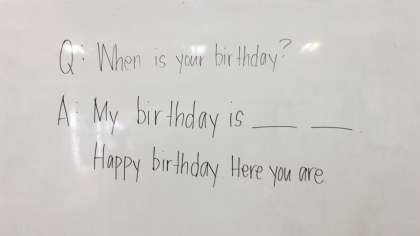 Q: When is your birthday?
A: My birthday is ____ ____.
Happy birthday Here you are